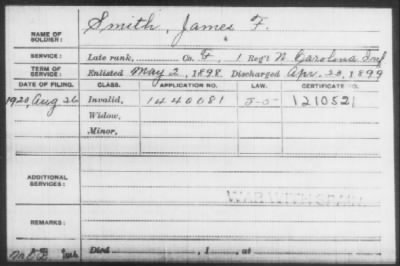 NAME OF SOLDIER: Smith, James F.
SERVICE: Late rank, Co. F, 1 Reg't N Carolina Inf
TERM OF SERVICE: Enlisted May 2, 1898. Discharged Apr. 20, 1899
DATE OF FILING. CLASS. APPLICATION NO. LAW. CERTIFICATE NO.
1920, Aug 26 Invalid, 1440081 1210521
Widow,
Minor,
ADDITIONAL SERVICES:
WAR WITH SPAIN
REMARKS:
Died , 1 , at